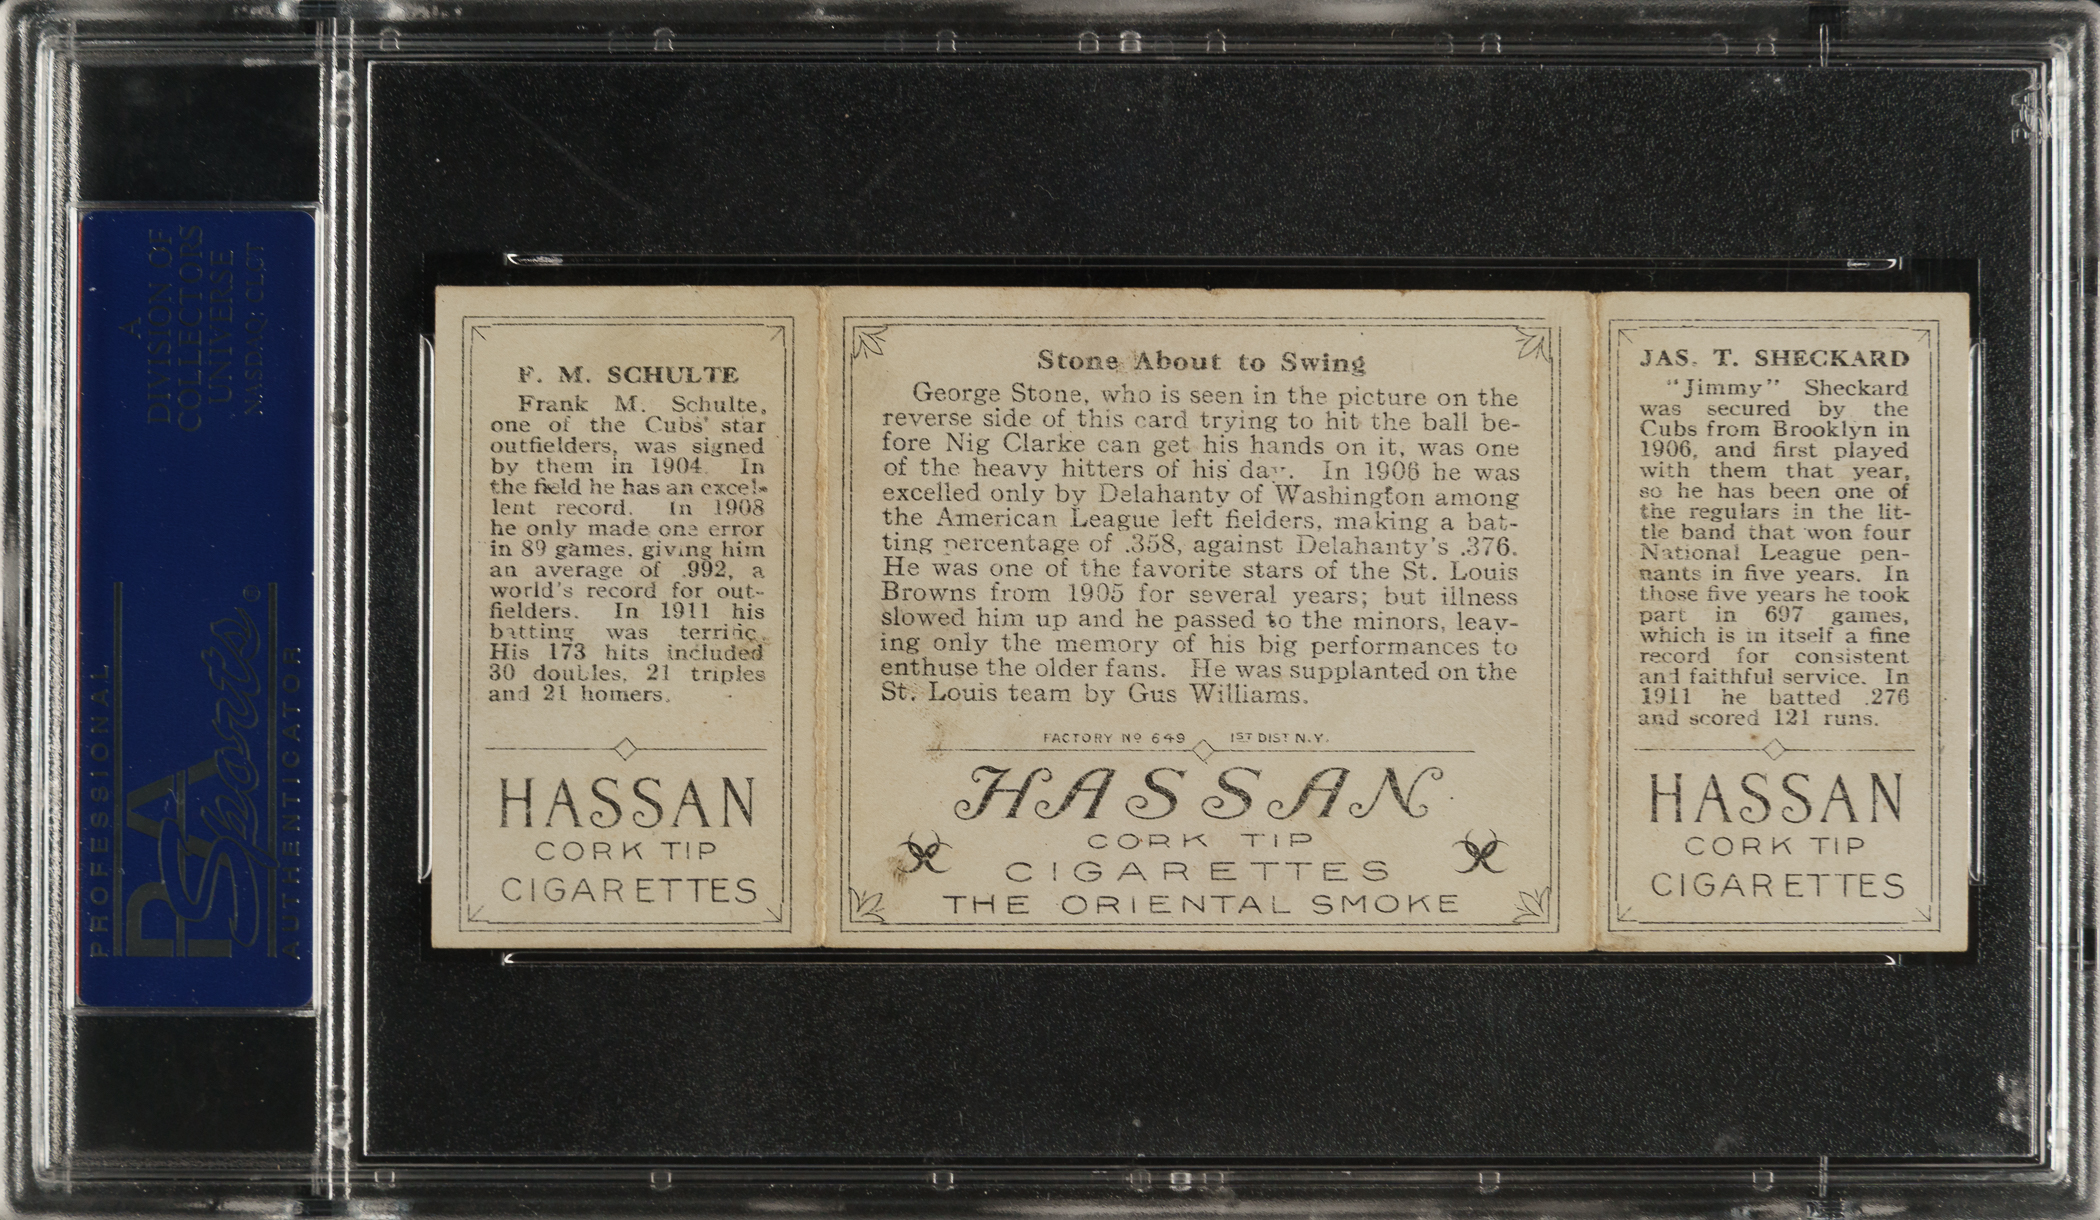 A
DIVISION OF
COLLECTORS
UNIVERSE
NASDAQ: CLCT
PROFESSIONAL
PSA
Sports®
AUTHENTICATOR
F. M. SCHULTE
Frank M. Schulte,
one of the Cubs' star
outfielders, was signed
by them in 1904. In
the field he has an excel-
lent record. In 1908
he only made one error
in 89 games, giving him
an average of .992, a
world's record for out-
fielders. In 1911 his
batting was terrific.
His 173 hits included
30 doubles, 21 triples
and 21 homers.
HASSAN
CORK TIP
CIGARETTES
Stone About to Swing
George Stone, who is seen in the picture on the
reverse side of this card trying to hit the ball be-
fore Nig Clarke can get his hands on it, was one
of the heavy hitters of his day. In 1906 he was
excelled only by Delahanty of Washington among
the American League left fielders, making a bat-
ting percentage of .358, against Delahanty's .376.
He was one of the favorite stars of the St. Louis
Browns from 1905 for several years; but illness
slowed him up and he passed to the minors, leav-
ing only the memory of his big performances to
enthuse the older fans. He was supplanted on the
St. Louis team by Gus Williams.
FACTORY Nº 649 1ST DIST N.Y.
HASSAN
CORK TIP
CIGARETTES
THE ORIENTAL SMOKE
JAS. T. SHECKARD
"Jimmy" Sheckard
was secured by the
Cubs from Brooklyn in
1906, and first played
with them that year,
so he has been one of
the regulars in the lit-
tle band that won four
National League pen-
nants in five years. In
those five years he took
part in 697 games,
which is in itself a fine
record for consistent
and faithful service. In
1911 he batted .276
and scored 121 runs.
HASSAN
CORK TIP
CIGARETTES